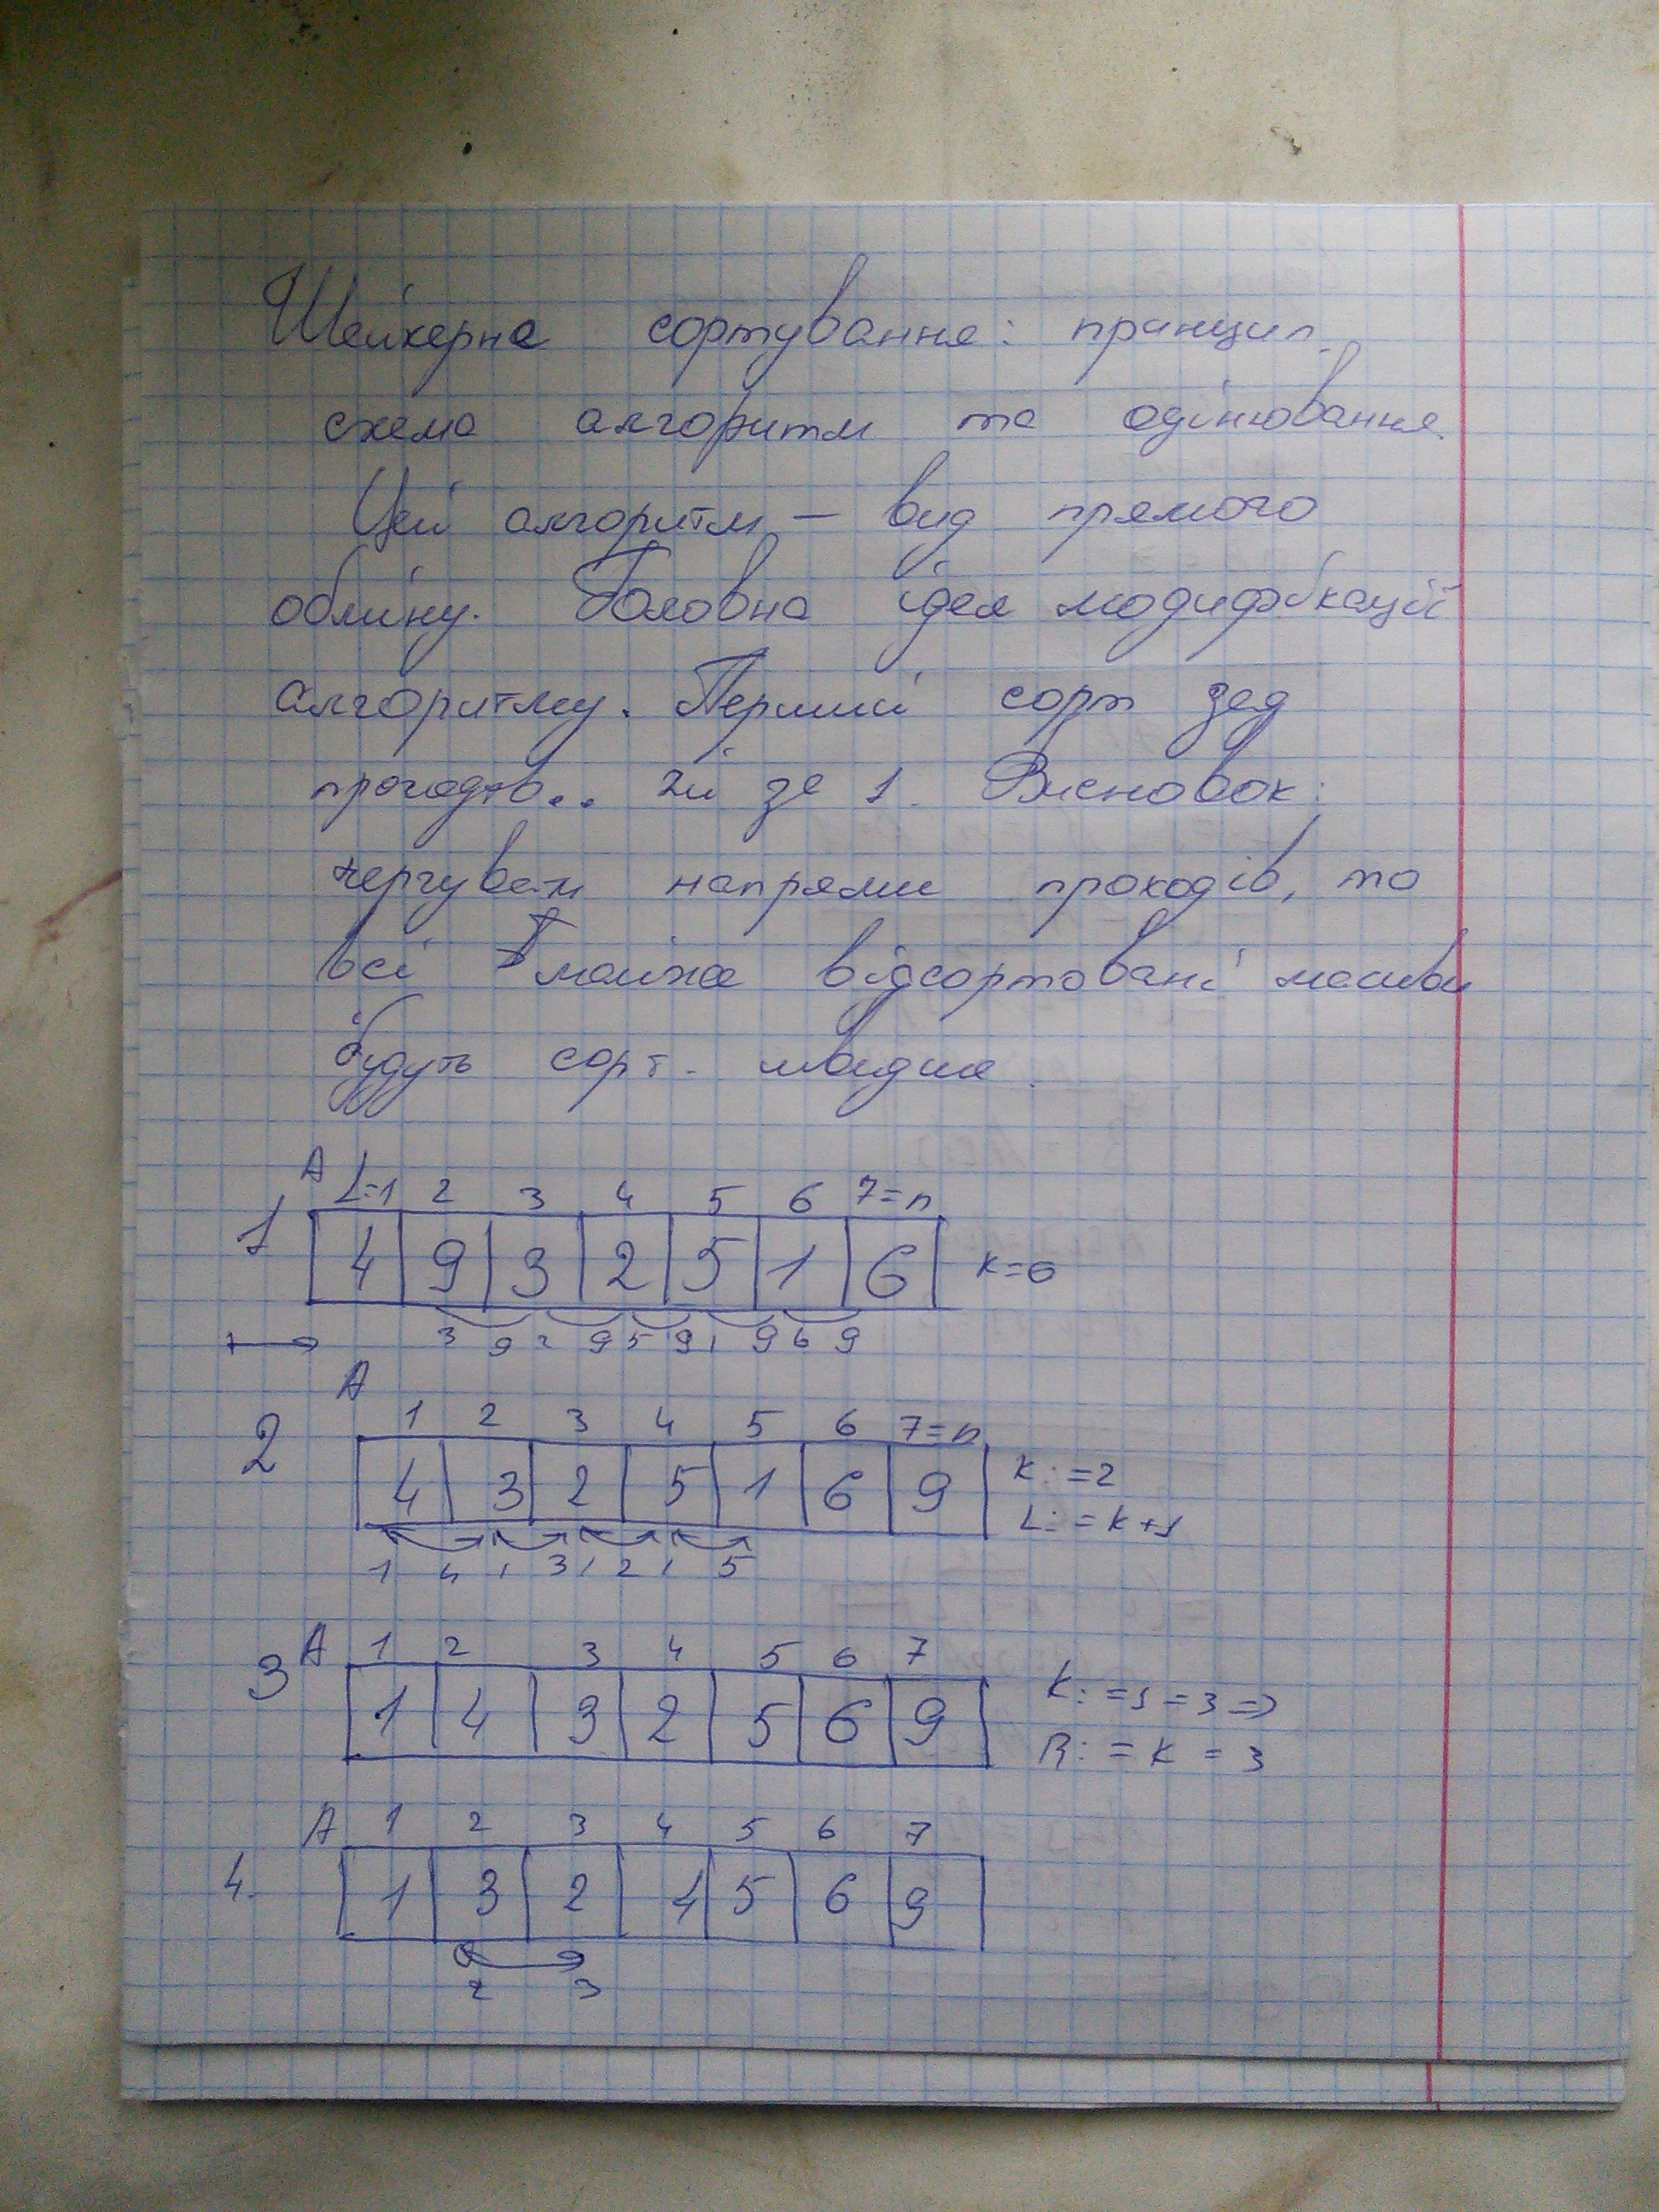 Шейкерне сортування: принцип,
схема алгоритм та оцінювання.
Цей алгоритм – вид прямого
обміну. Головна ідея модифікації
алгоритму. Перший сорт зад
проходів.. за 1. Висновок:
чергувати напрями проходів, то
всі майже відсортовані масиви
будуть сорт. швидше.
A L=1 2 3 4 5 6 7=n
1 4 9 3 2 5 1 6 K=0
3 9 2 9 5 9 1 9 6 9
A
1 2 3 4 5 6 7=n
2 4 3 2 5 1 6 9 K:=2
L:=K+1
1 4 1 3 1 2 1 5
A 1 2 3 4 5 6 7
3 1 4 3 2 5 6 9 K:=J=3=>
R:=K=3
A 1 2 3 4 5 6 7
4. 1 3 2 4 5 6 9
2 3